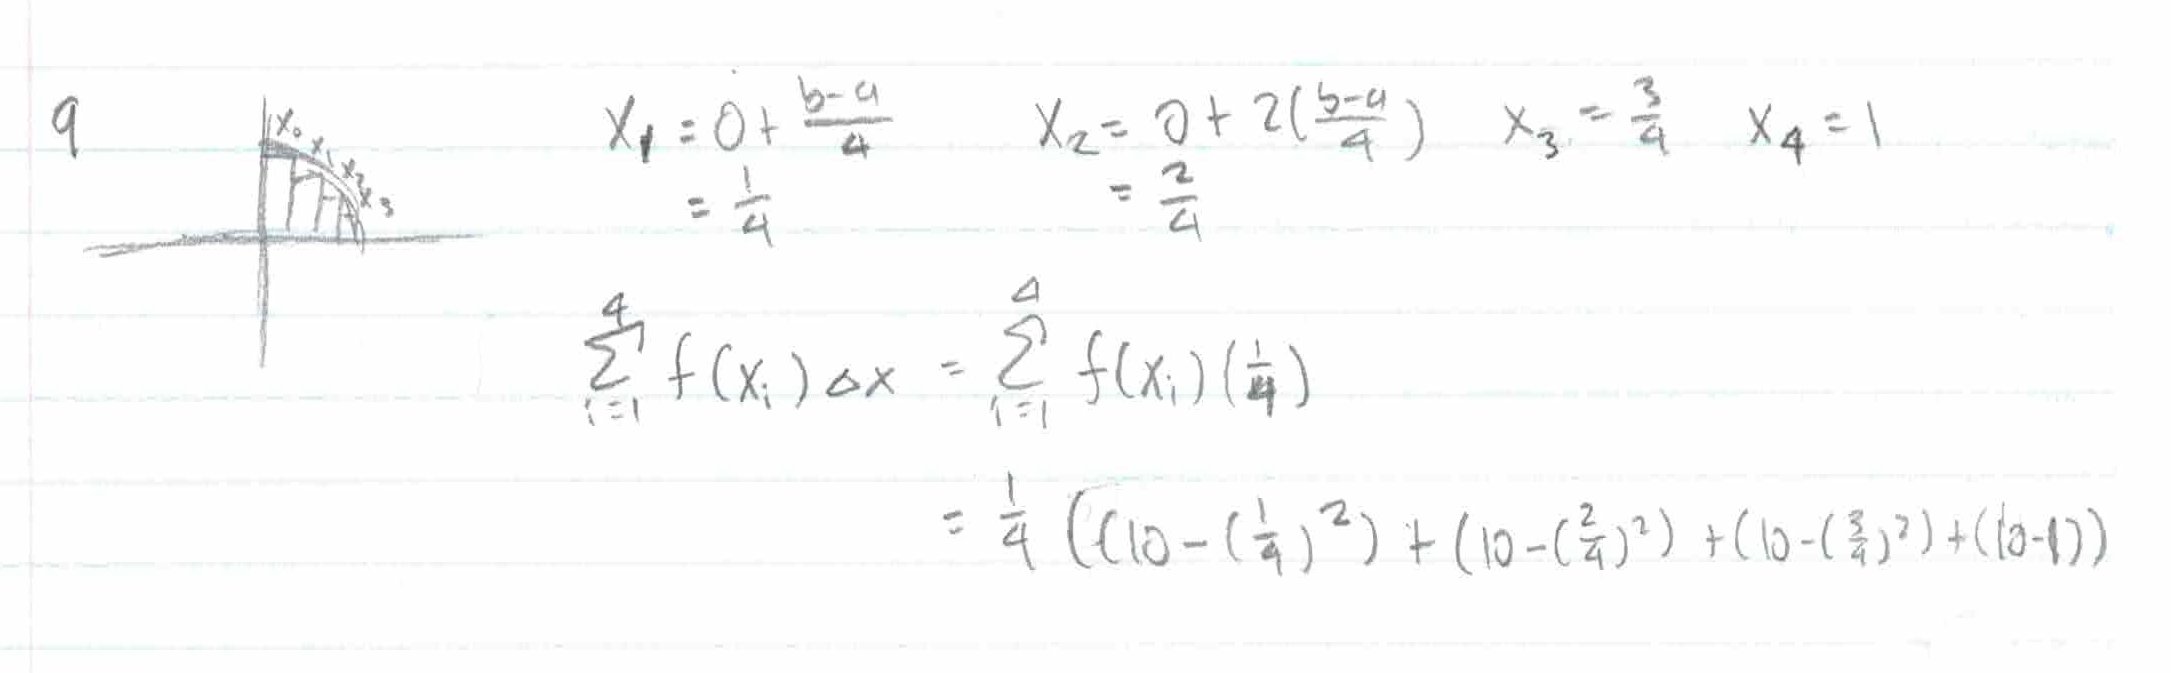 9 x₀ x₁ x₂ x₃ x₁ = 0 + (b-a)/4 x₂ = 0 + 2((b-a)/4) x₃ = 3/4 x₄ = 1
= 1/4 = 2/4
∑_{i=1}^{4} f(xᵢ) Δx = ∑_{i=1}^{4} f(xᵢ)(1/4)
= 1/4 ((10-(1/4)²) + (10-(2/4)²) + (10-(3/4)²) + (10-1))